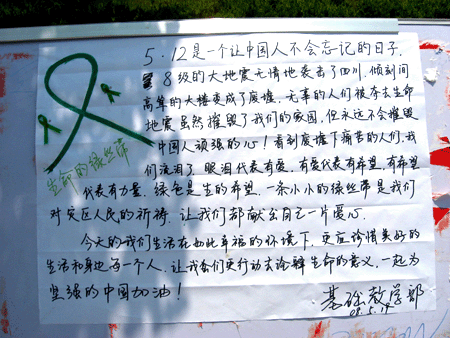 5·12是一个让中国人不会忘记的日子.
8级的大地震无情地袭击了四川.倾刻间
高耸的大楼变成了废墟.无辜的人们被夺去生命
地震虽然摧毁了我们的家园,但永远不会摧毁
中国人顽强的心!看到废墟下痛苦的人们,我
们流泪了.眼泪代表有爱.有爱代表有希望.有希望
代表有力量.绿色是生的希望.一条小小的绿丝带是我们
对灾区人民的祈祷.让我们都献出自己一片爱心.
今天的我们生活在如此幸福的环境下,更应珍惜美好的
生活和身边每个人.让我们更行动去诠释生命的意义.一起为
坚强的中国加油!
生命的绿丝带
基础教学部
08.5.19